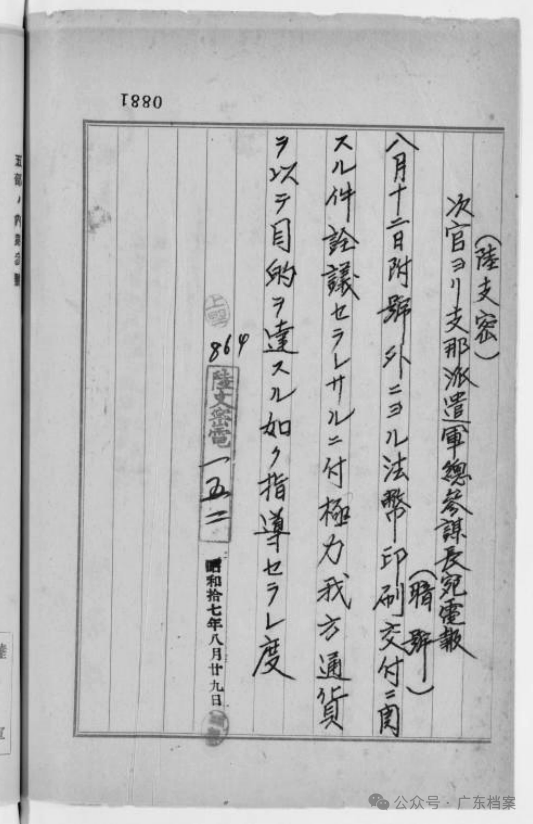 0881
(陸支密)
次官ヨリ支那派遣軍總參謀長宛電報
(暗號)
八月十二日附號外ニヨル法幣印刷交付ニ関
スル件詮議セラレサルニ付極力我方通貨
ヲ以テ目的ヲ達スル如ク指導セラレ度
864
陸支密電
一五二
昭和拾七年八月廿九日
公众号·广东档案